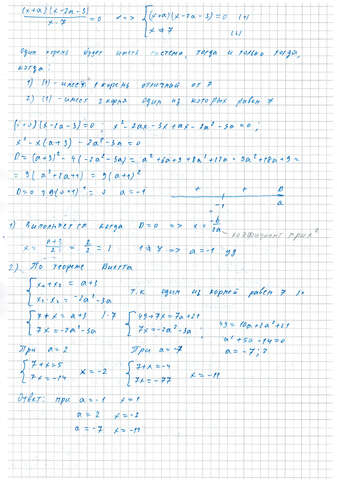 (x+a)(x-2a-3)/(x-7) = 0 <=> { (x+a)(x-2a-3)=0 (1)
x≠7 (2)
Один корень будет иметь система, тогда и только тогда,
когда:
1) (1) - имеет 1 корень отличный от 7
2) (1) - имеет 2 корня один из которых равен 7
(x+a)(x-2a-3)=0; x²-2ax-3x+ax-2a²-3a=0;
x²-x(a+3)-2a²-3a=0
D=(a+3)²-4(-2a²-3a)=a²+6a+9+8a²+12a=9a²+18a+9=
=9(a²+2a+1)=9(a+1)²
D=0 9(a+1)²=0 a=-1
+ + D
-1 a
1) Выполняется когда D=0 => x=-b/2a
x=(a+3)/2=2/2=1 1≠7 => a=-1 уд
2) По теореме Виета
{ x₁+x₂=a+3
x₁·x₂=-2a²-3a т.к один из корней равен 7 то
{ 7+x=a+3 |·7
7x=-2a²-3a
{ 49+7x=7a+21
7x=-2a²-3a; 49=10a+2a²+21
a²+5a-14=0
a=-7;2
При a=2
{ 7+x=5
7x=-14 x=-2
При a=-7
{ 7+x=-4
7x=-77 x=-11
Ответ: при a=-1 x=1
a=2 x=-2
a=-7 x=-11